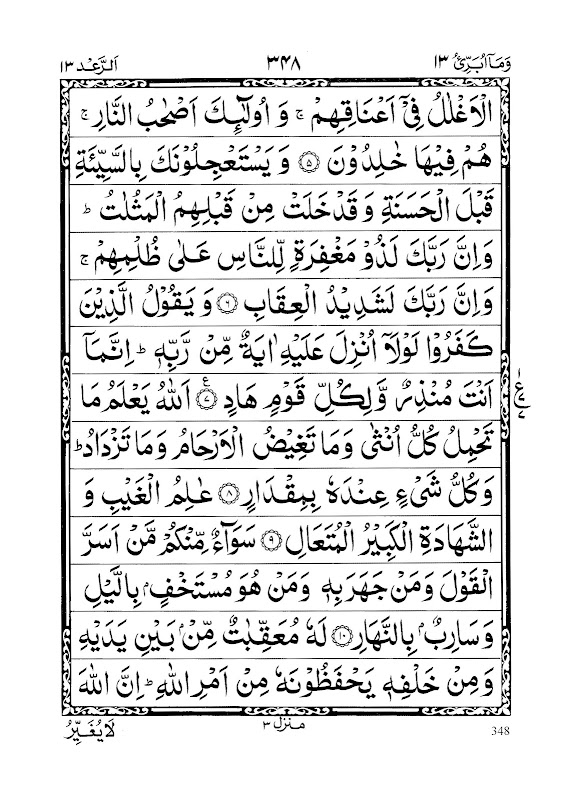 وَمَاۤ اُبَرِّئُ ١٣ ٣٤٨ اَلرَّعْد ١٣
الْاَغْلٰلُ فِیْۤ اَعْنَاقِهِمْ ۚ وَ اُولٰٓئِكَ اَصْحٰبُ النَّارِ ۚ
هُمْ فِیْهَا خٰلِدُوْنَ ۝۵ وَ یَسْتَعْجِلُوْنَكَ بِالسَّیِّئَةِ
قَبْلَ الْحَسَنَةِ وَ قَدْ خَلَتْ مِنْ قَبْلِهِمُ الْمَثُلٰتُ ؕ
وَاِنَّ رَبَّكَ لَذُوْ مَغْفِرَةٍ لِّلنَّاسِ عَلٰی ظُلْمِهِمْ ۚ
وَاِنَّ رَبَّكَ لَشَدِیْدُ الْعِقَابِ ۝۶ وَ یَقُوْلُ الَّذِیْنَ
كَفَرُوْا لَوْلَاۤ اُنْزِلَ عَلَیْهِ اٰیَةٌ مِّنْ رَّبِّهٖ ؕ اِنَّمَاۤ
اَنْتَ مُنْذِرٌ وَّ لِكُلِّ قَوْمٍ هَادٍ ۝۷ع اَللّٰهُ یَعْلَمُ مَا
تَحْمِلُ كُلُّ اُنْثٰی وَمَا تَغِیْضُ الْاَرْحَامُ وَمَا تَزْدَادُ ؕ
وَ كُلُّ شَیْءٍ عِنْدَهٗ بِمِقْدَارٍ ۝۸ عٰلِمُ الْغَیْبِ وَ
الشَّهَادَةِ الْكَبِیْرُ الْمُتَعَالِ ۝۹ سَوَآءٌ مِّنْكُمْ مَّنْ اَسَرَّ
الْقَوْلَ وَمَنْ جَهَرَ بِهٖ وَمَنْ هُوَ مُسْتَخْفٍۭ بِالَّیْلِ
وَ سَارِبٌۢ بِالنَّهَارِ ۝۱۰ لَهٗ مُعَقِّبٰتٌ مِّنْۢ بَیْنِ یَدَیْهِ
وَ مِنْ خَلْفِهٖ یَحْفَظُوْنَهٗ مِنْ اَمْرِ اللّٰهِ ؕ اِنَّ اللّٰهَ
لَا یُغَیِّرُ منزل ٣ 348